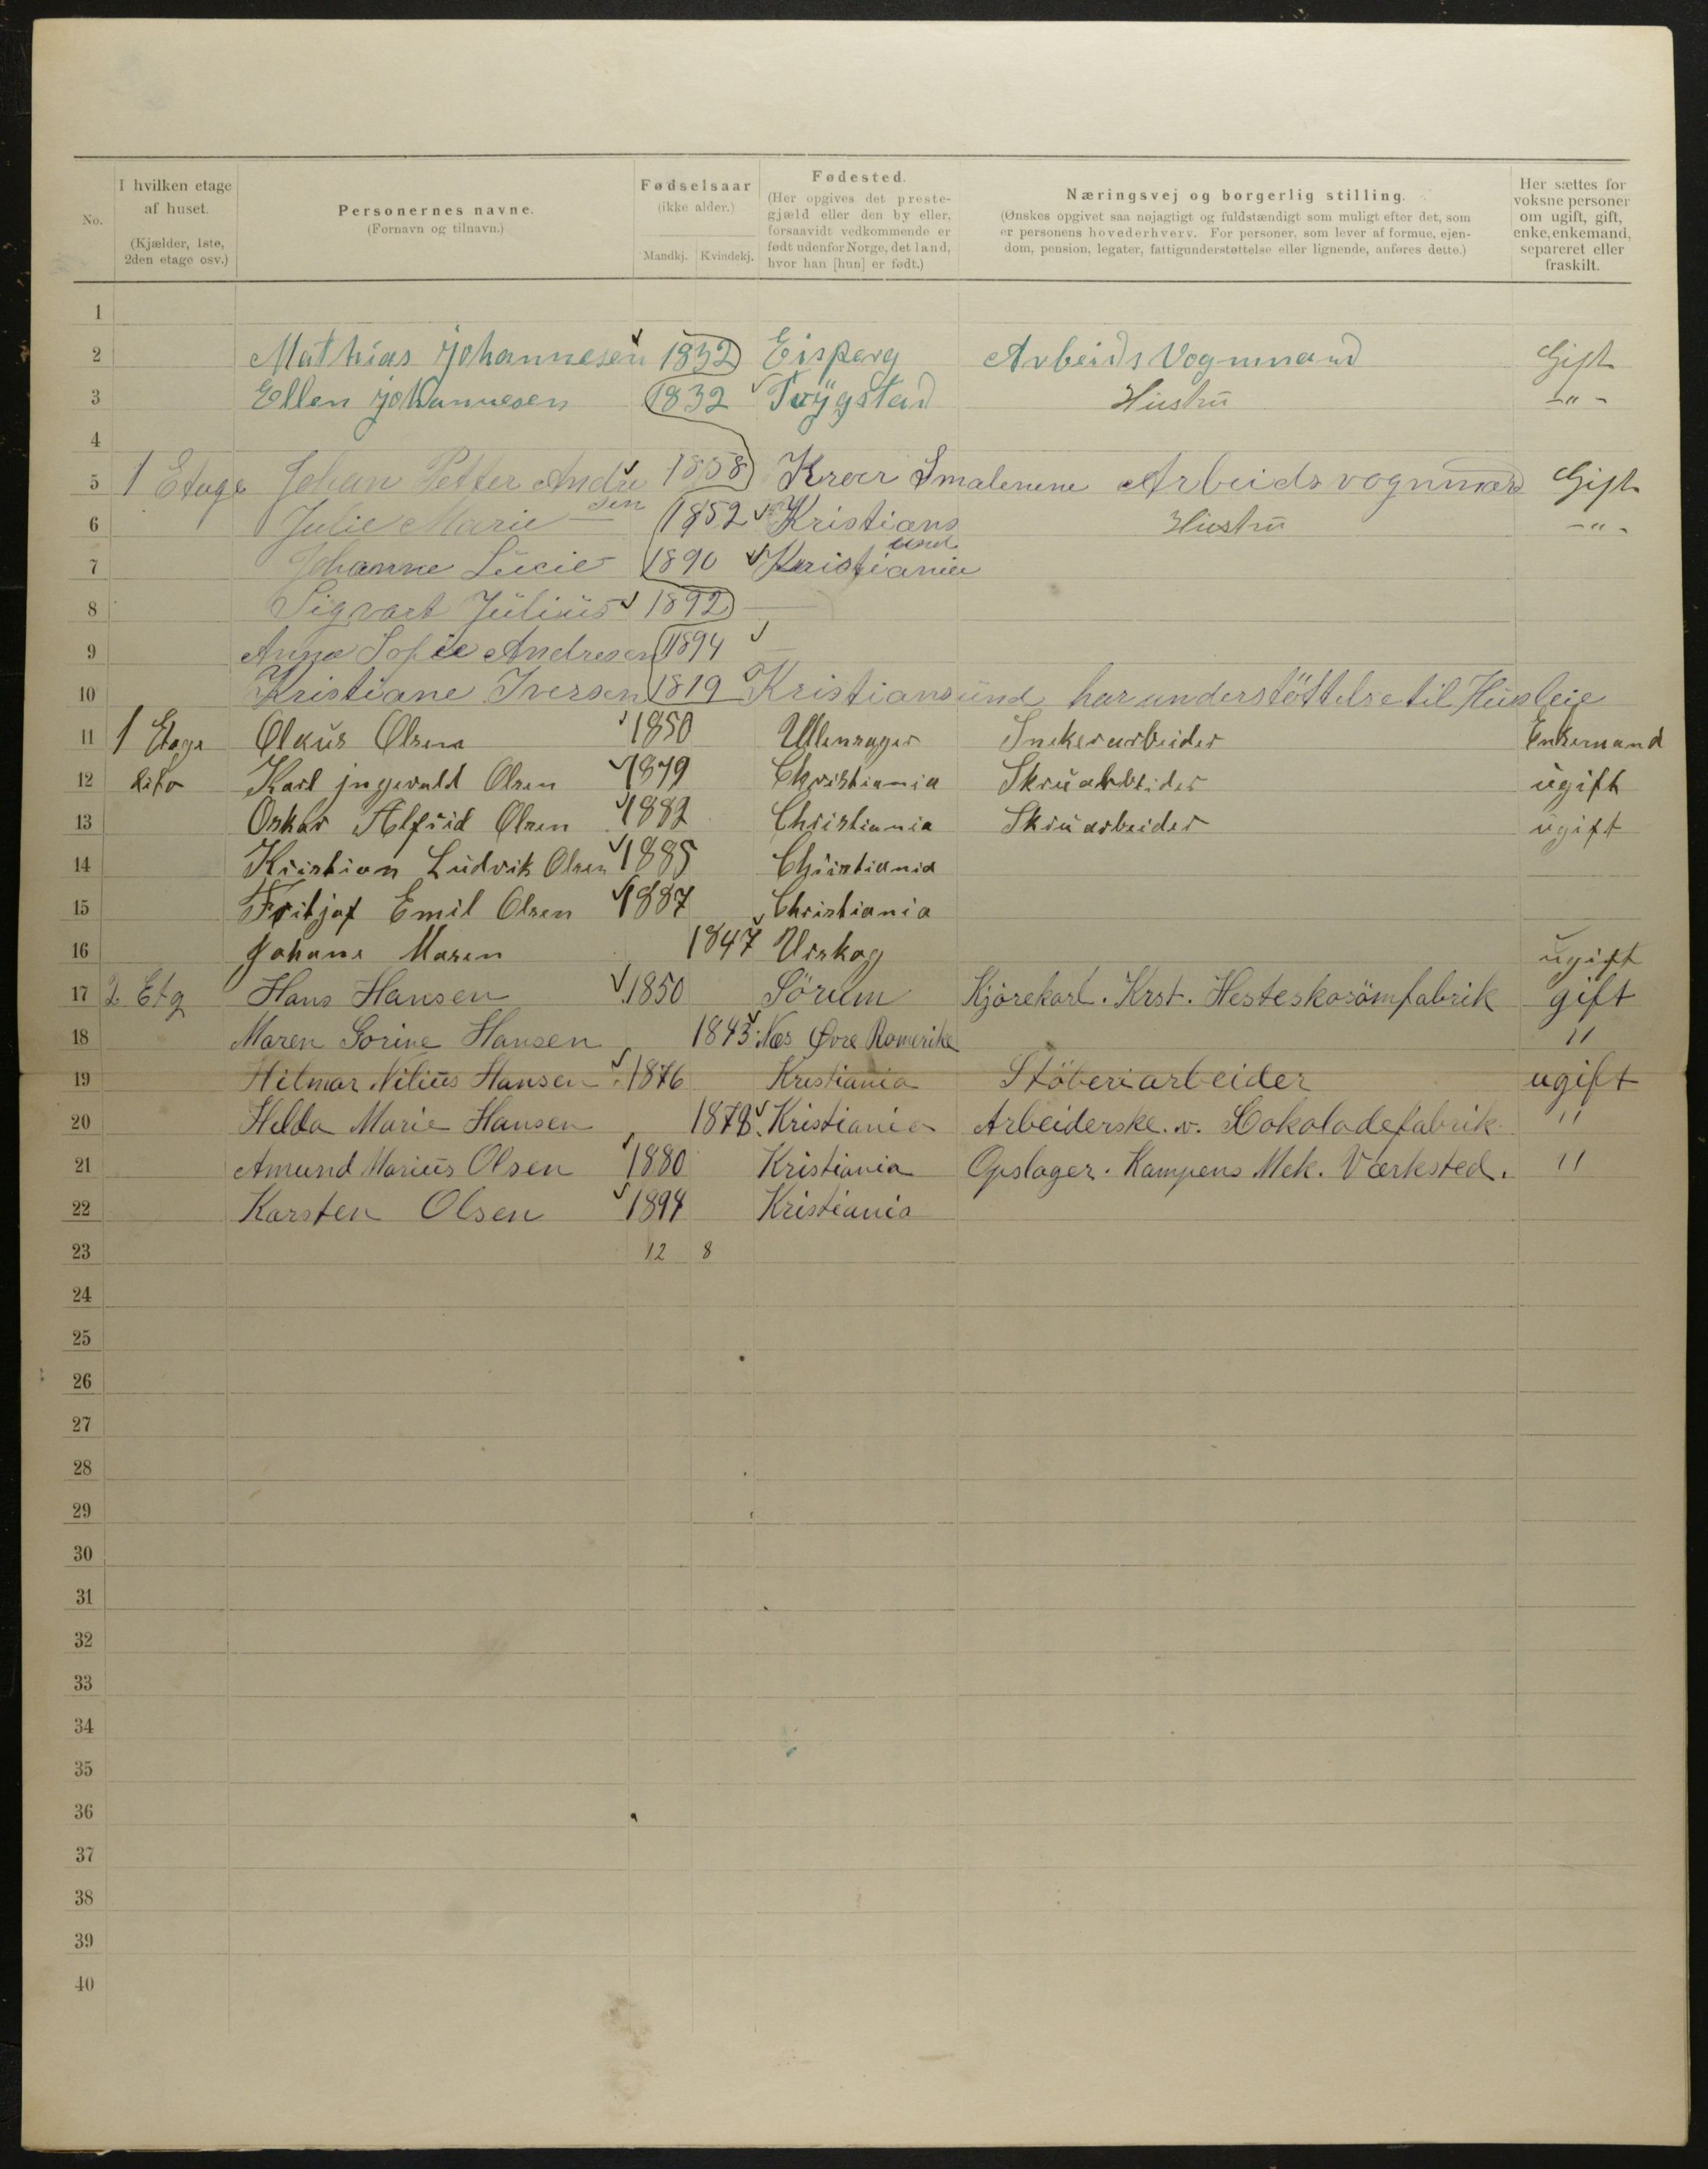 No.
I hvilken etage af huset. (Kjælder, 1ste, 2den etage osv.)
Personernes navne. (Fornavn og tilnavn.)
Fødselsaar (ikke alder.) Mandkj. Kvindekj.
Fødested. (Her opgives det prestegjæld eller den by eller, forsaavidt vedkommende er født udenfor Norge, det land, hvor han [hun] er født.)
Næringsvej og borgerlig stilling. (Ønskes opgivet saa nøjagtigt og fuldstændigt som muligt efter det, som er personens hovederhverv. For personer, som lever af formue, ejendom, pension, legater, fattigunderstøttelse eller lignende, anføres dette.)
Her sættes for voksne personer om ugift, gift, enke, enkemand, separeret eller fraskilt.
1
2 Mathias Johannesen 1832 Eisperg Arbeids Vognmand Gift
3 Ellen Johannesen 1832 Trygstad Hustru -"-
4
5 1 Etage Johan Petter Andresen 1858 Kroer Smalenene Arbeidsvognmand Gift
6 Julie Marie — 1852 Kristiansund Hustru -"-
7 Johanne Lucie 1890 Kristiania
8 Sigvart Julius 1892 —
9 Anna Sofie Andresen 1894 —
10 Kristiane Iversen 1819 Kristiansund har understöttelse til Husleie
11 1 Etage Olaus Olsen 1850 Ullensager Snekerarbeider Enkemand
12 dito Karl Jngevald Olsen 1879 Christiania Skruarbeider ugift
13 Oskar Alfrid Olsen 1882 Christiania Skruarbeider ugift
14 Kristian Ludvik Olsen 1885 Christiania
15 Fritjof Emil Olsen 1887 Christiania
16 Johane Maren 1847 Urskog ugift
17 2 Etg Hans Hansen 1850 Sörum Kjörekarl. Krst. Hesteskosömfabrik gift
18 Maren Sorine Hansen 1843 Næs Øvre Romerike "
19 Hilmar Nilius Hansen 1876 Kristiania Stöberiarbeider ugift
20 Helda Marie Hansen 1878 Kristiania Arbeiderske. v. Cokoladefabrik "
21 Amund Marius Olsen 1880 Kristiania Opslager. Kampens Mek. Værksted. "
22 Karsten Olsen 1894 Kristiania
23 12 8
24
25
26
27
28
29
30
31
32
33
34
35
36
37
38
39
40